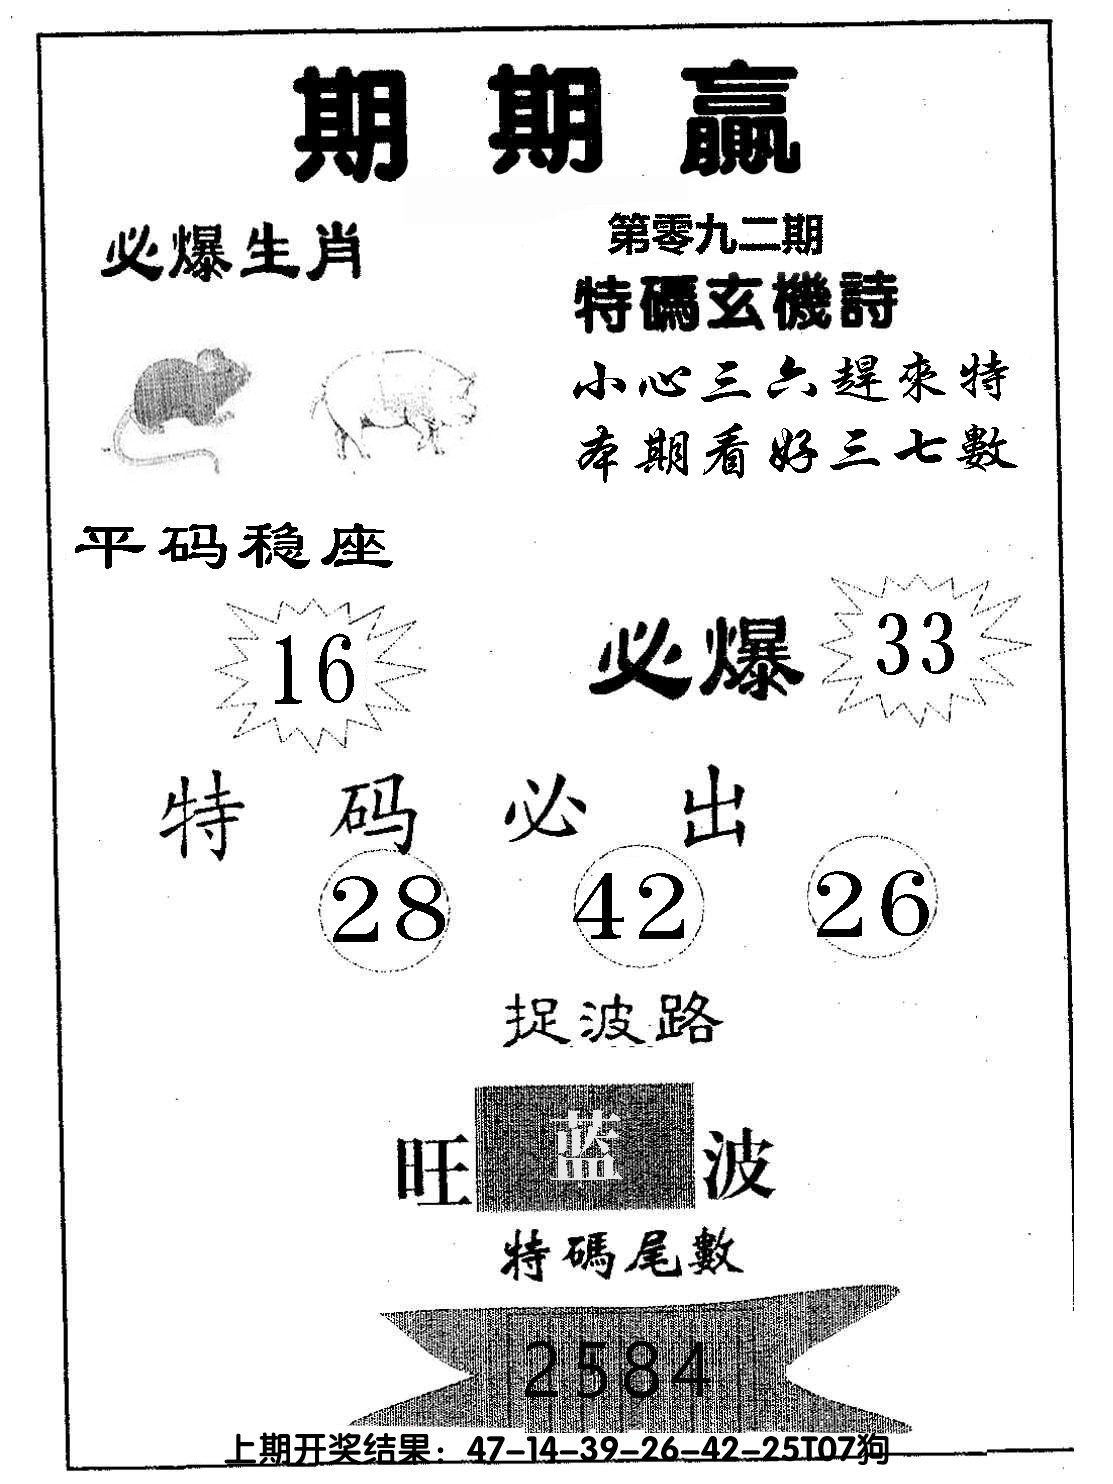 期期贏
必爆生肖
第零九二期
特碼玄機詩
小心三六趕來特
本期看好三七數
平码稳座
16
必爆 33
特码必出
28 42 26
捉波路
旺 蓝 波
特碼尾數
2584
上期开奖结果：47-14-39-26-42-25T07狗